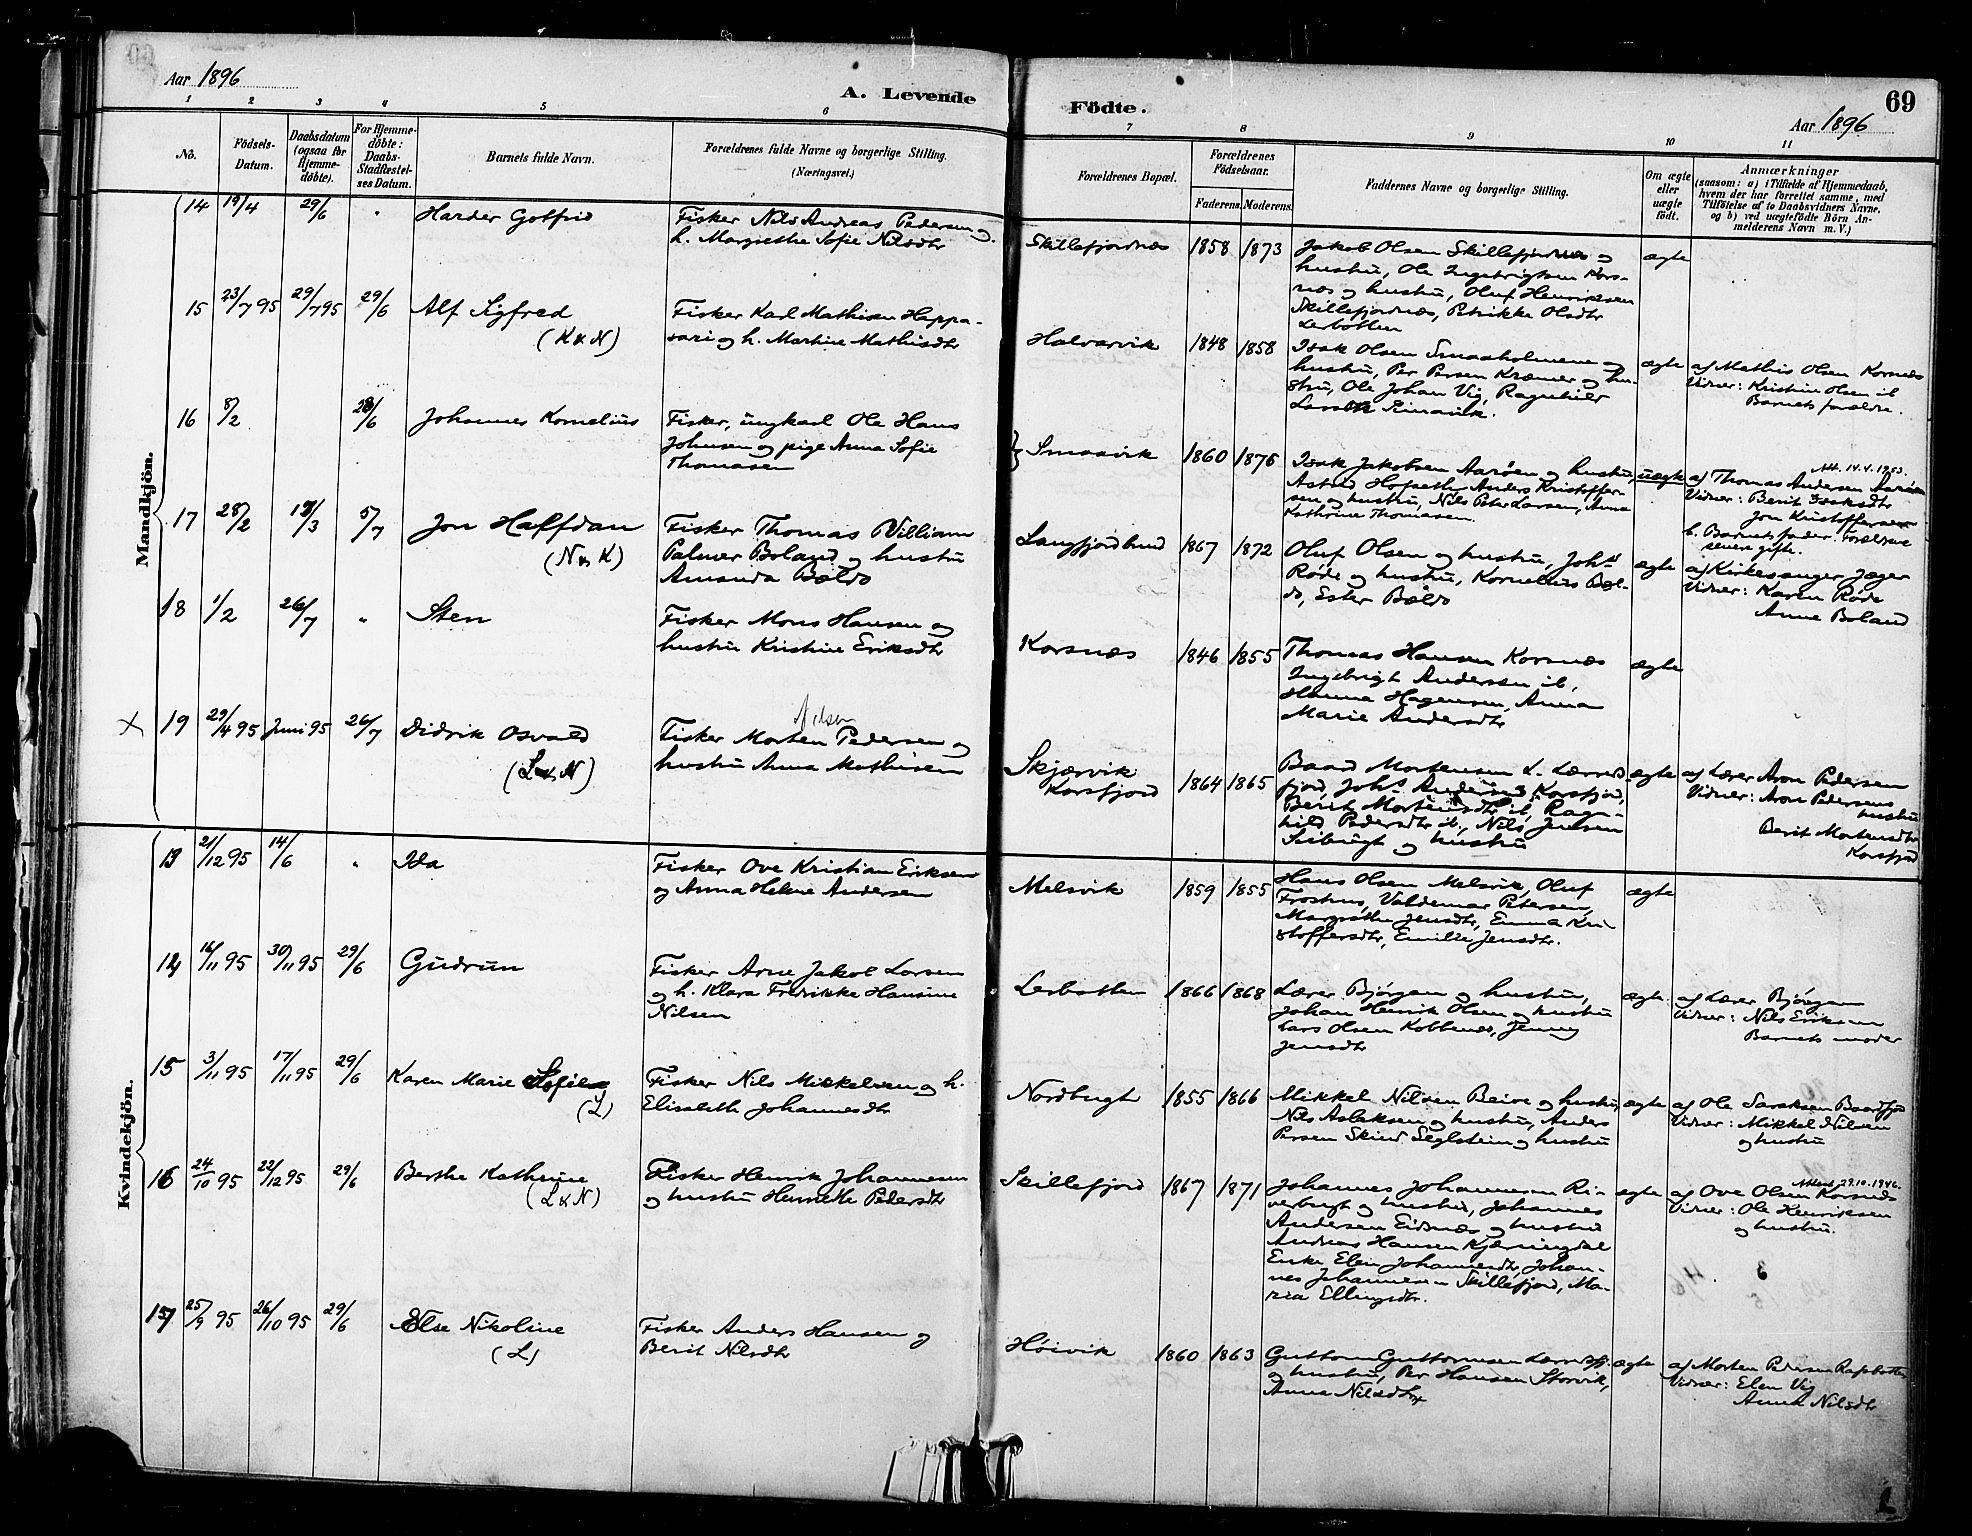 Aar 1896
A. Levende
Födte.
69
Aar 1896
1 2 3 4 5 6
7 8 9 10 11
No.
Födsels-
Datum.
Daabsdatum
(ogsaa for
Hjemme-
döbte).
For Hjemme-
döbte:
Daabs-
Stadfæstel-
ses Datum.
Barnets fulde Navn.
Forældrenes fulde Navne og borgerlige Stilling.
(Næringsvei.)
Forældrenes Bopæl.
Forældrenes
Födselsaar.
Faderens. Moderens.
Faddernes Navne og borgerlige Stilling.
Om ægte
eller
uægte
födt.
Anmærkninger
(saasom: a) i Tilfælde af Hjemmedaab,
hvem der har forrettet samme, med
Tilföielse af to Daabsvidners Navne,
og b) ved uægtefödte Börn An-
melderens Navn m. V.)
Mandkjön.
14 19/4 29/6 " Harder Gotfrid
Fisker Nils Andreas Pedersen og
h. Margrethe Sofie Nilsdtr
Skillefjordnæs 1858 1873
Jakob Olsen Skillefjordnæs og
hustru, Ole Ingebrigtsen Kors-
næs og hustru, Oluf Henriksen
Skillefjordnæs, Petrikke Olsdtr
Lerbotten
ægte
15 23/7 95 29/7 95 29/6 Alf Sigfred
(K & N)
Fisker Karl Mathisen Happa-
vari og h. Martine Mathisdtr
Halvarvik 1848 1858
Isak Olsen Smaaholmene og
hustru, Per Persen Kræmer og hu-
stru, Ole Johan Vig, Ragnhild
ægte
af Mathis Olsen Korsnæs
Vidner: Kristine Olsen ib
Barnets forældre.
16 8/2 28/6 Johannes Kornelius
Fisker, ungkarl Ole Hans
Johnsen og pige Anna Sofie
Thomasen
Smaavik 1860 1876
Isak Jakobsen Aarøen og hustru,
Astrid Hofseth, Anders Kristoffer-
sen og hustru, Nils Peter Larsen, Anna
Kathrine Thomasen.
uægte
Att. 14.4.1953.
af Thomas Andersen Aarøen
Vidner: Berit Isaksdtr
Jon Kristoffersen
b. Barnets fader. Forældrene
senere gifte.
17 28/2 13/3 5/7 Jon Halfdan
(N & K)
Fisker Thomas William
Palmer Boland og hustru
Amanda Bældo
Langfjordbund 1867 1872
Oluf Olsen og hustru, Johs
Røde og hustru, Kornelius Bæl-
do, Ester Bældo
ægte
af Kirkesanger Jæger
Vidner: Karen Røde
Anne Boland
18 1/2 26/7 " Sten
Fisker Mons Hansen og
hustru Kristine Eriksdtr
Korsnæs 1846 1855
Thomas Hansen Korsnæs
Ingebrigt Andersen ib,
Hanna Hagensen, Anna
Marie Andersdtr
ægte
X 19 29/4 95 Juni 95 26/7 Didrik Osvald
(L & N)
Nilsen
Fisker Morten Pedersen og
hustru Anna Mathisen
Skjærvik
Korsfjord 1864 1865
Baard Mortensen L. Lerres-
fjord, Johs Andersen Korsfjord,
Berit Mortensdtr ib, Ragn-
hild Pedersdtr ib, Nils Jensen
og hustru
ægte
af Lærer Aron Pedersen
Vidner: Aron Pedersens
hustru
Berit Mortensdtr
Korsfjord
Kvindekjön.
13 21/12 95 14/6 " Ida
Fisker Ove Kristian Eriksen
og Anna Helene Andersen
Melsvik 1859 1855
Hans Olsen Melsvik, Oluf
Frosthus, Valdemar Petersen,
Margrethe Jensdtr, Emma Kri-
stoffersdtr, Emilie Jensdtr.
ægte
14 16/11 95 30/11 95 29/6 Gudrun
Fisker Arne Jakob Larsen
og h. Klara Fredrikke Hansine
Nilsen
Lerbotten 1866 1868
Lærer Bjørgan og hustru,
Johan Henrik Olsen og hustru
Lars Olsen Kobbenæs, Jenny
Jensdtr
ægte
af Lærer Bjørgan
Vidner: Nils Eriksen
Barnets moder
15 3/11 95 17/11 95 29/6 Karen Marie Sofie
(L)
Fisker Nils Mikkelsen og h.
Elisabeth Johannesdtr
Nordbugt 1855 1866
Mikkel Nilsen Beive og hustru,
Nils Aslaksen og hustru, Anders
Persen Skind Seglstein og hustru
ægte
af Ole Isaksen Baardfjo
Vidner: Mikkel Nilsen
og hustru
16 24/10 95 22/12 95 29/6 Berthe Kathrine
(L & N)
Fisker Henrik Johannesen
og hustru Henrette Pedersdtr
Skillefjord 1867 1871
Johannes Johannesen Ri-
verbugt og hustru, Johannes
Andersen Eidsnæs og hustru
Andreas Hansen Kjærringdal
Enke Elen Johannesdtr, Johan-
nes Johannesen Skillefjord, Ma-
ria Ellingsdtr.
ægte
Attest 29.10.1946.
af Ove Olsen Korsnæs
Vidner: Ole Henriksen
og hustru.
17 25/9 95 26/10 95 29/6 Else Nikoline
(L)
Fisker Anders Hansen og
Berit Nilsdtr
Høivik 1860 1863
Guttorm Guttormsen Lerresfj.
og hustru, Per Hansen Storvik,
Anna Nilsdtr
ægte
af Morten Pedersen Rafsbotten
Vidner: Elen Vig
Anna Nilsdtr